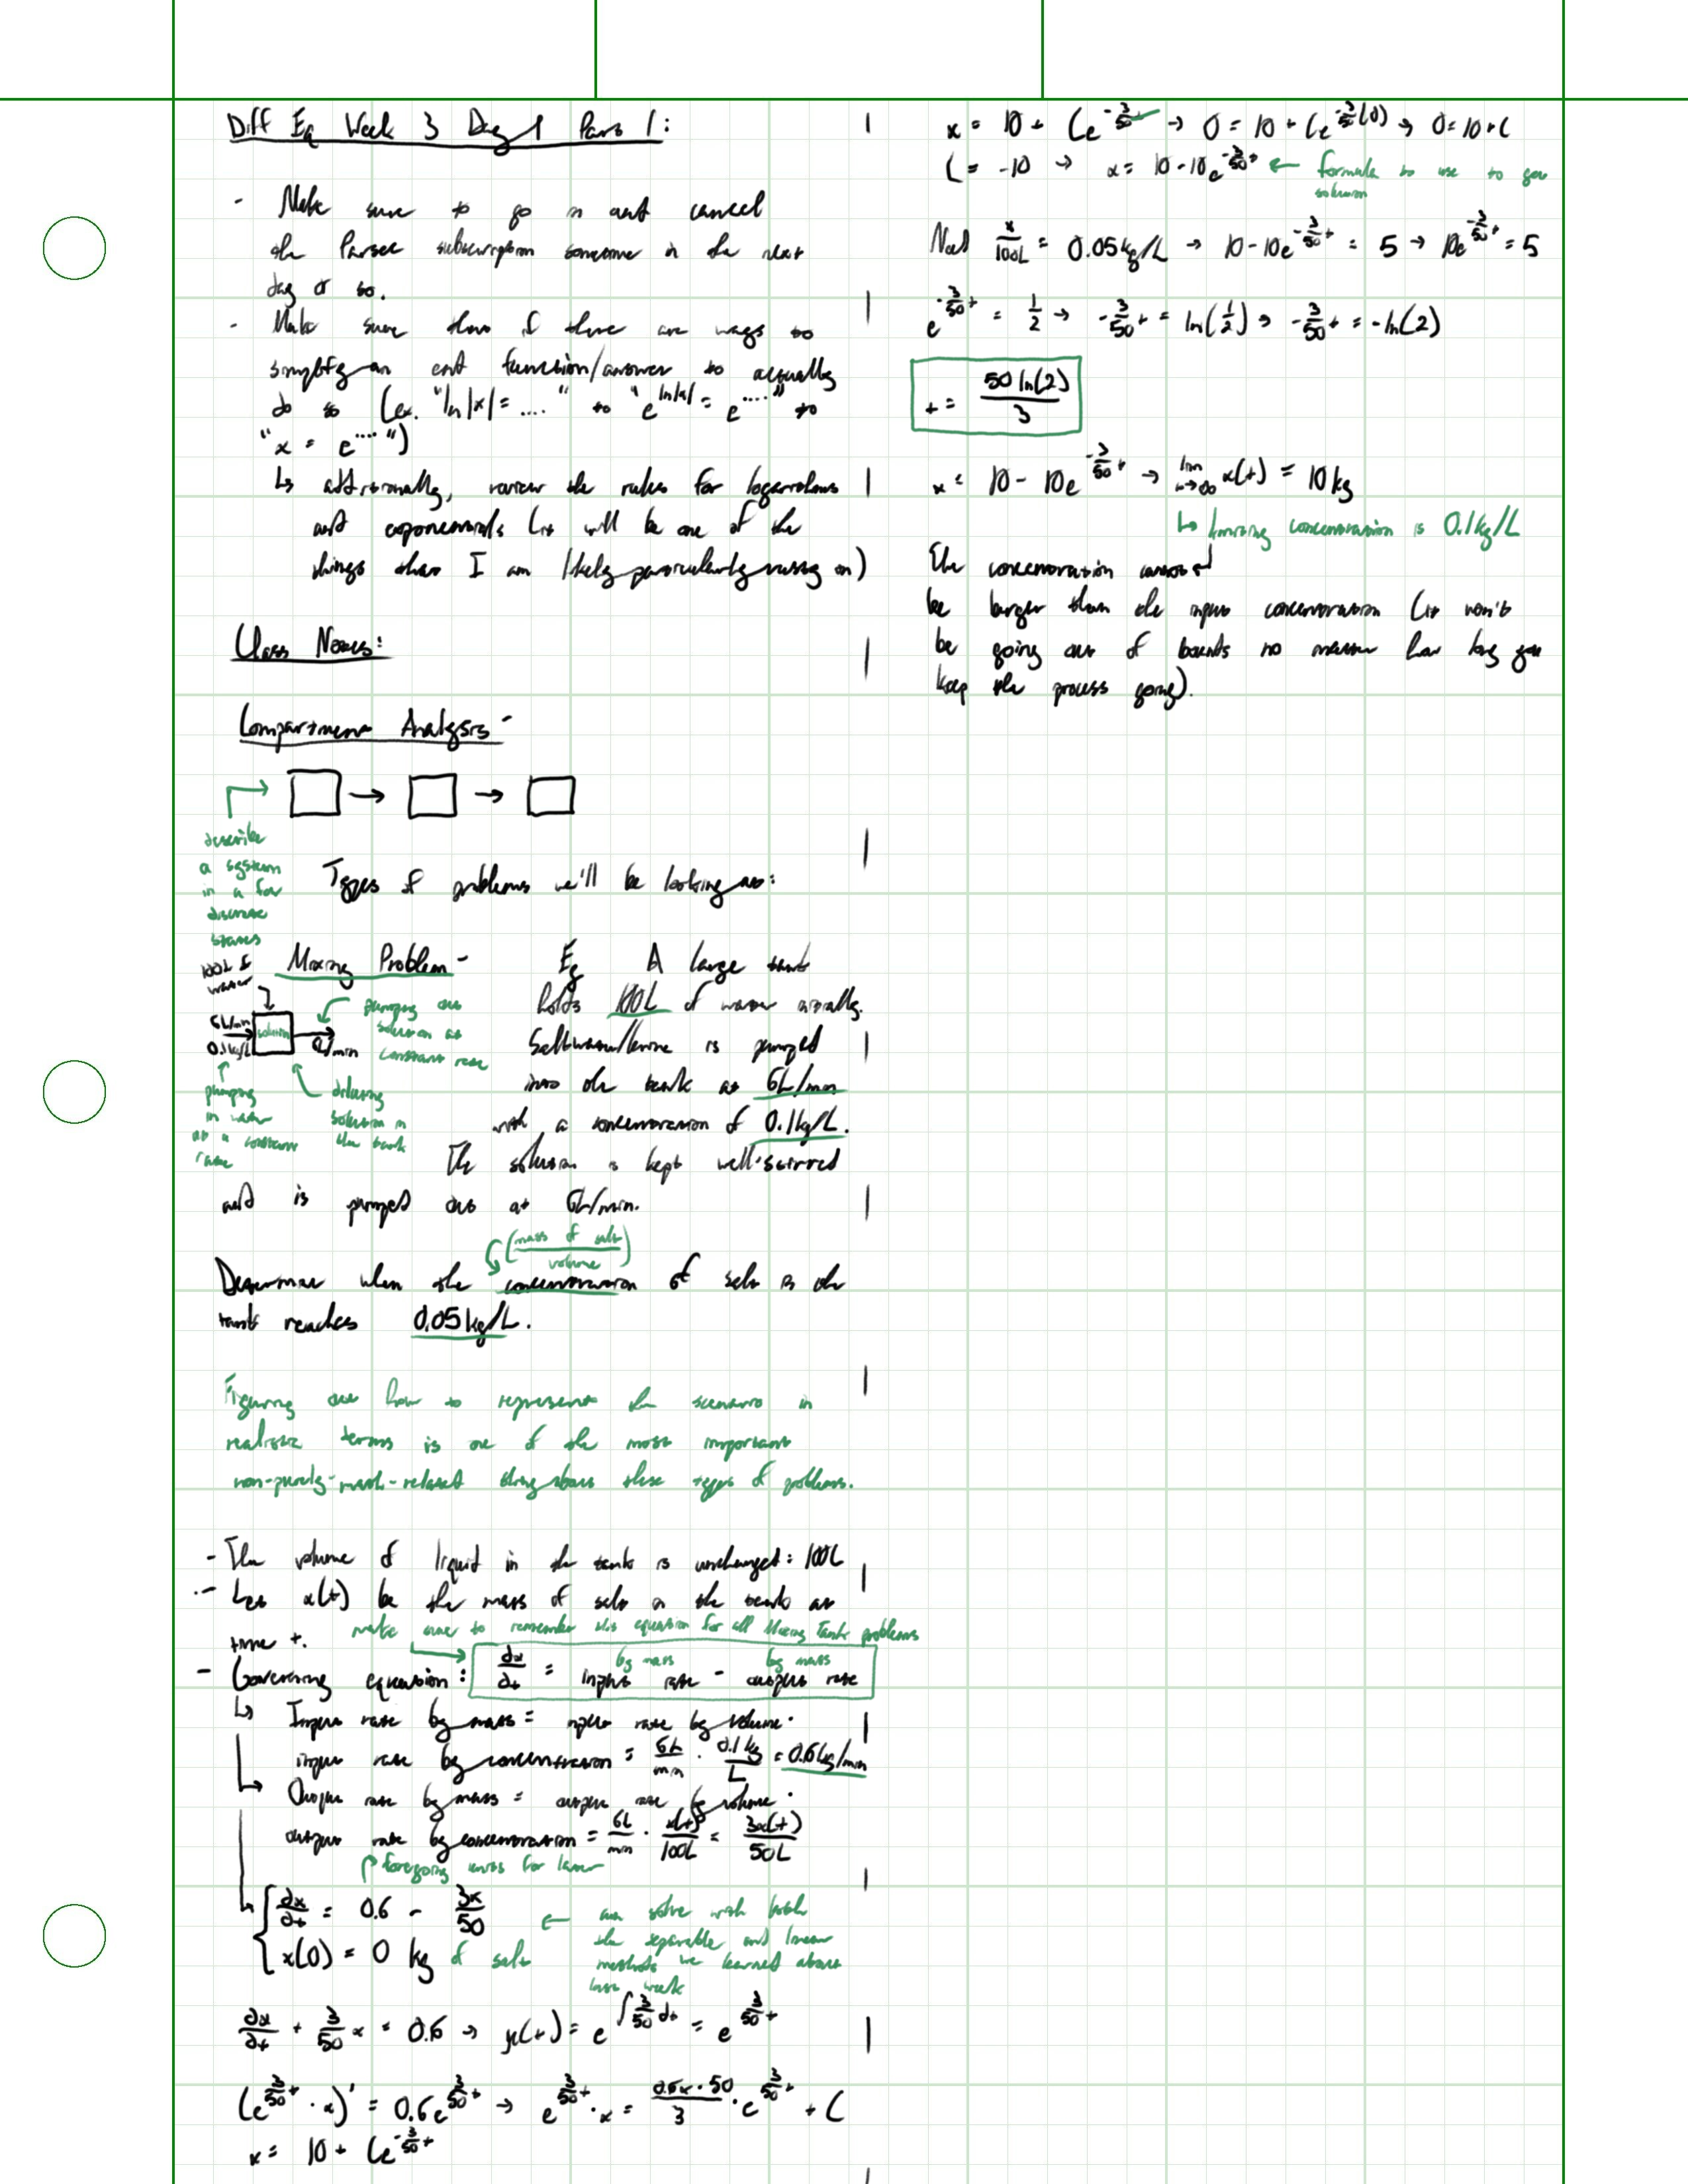 Diff Eq Week 3 Day 1 Part 1:
- Make sure to go in and cancel
the Parsec subscription sometime in the next
day or so.
- Make sure that if there are ways to
simplify an end function/answer to actually
do so (ex. "ln|x| = ...." to "e^{ln|x|} = e^{....}" to
"x = e^{....}")
↳ additionally, review the rules for logarithms
and exponentials (it will be one of the
things that I am likely particularly rusty on)
Class Notes:
Compartment Analysis -
□ → □ → □
describe
a system
in a few
discrete
states
Types of problems we'll be looking at:
Mixing Problem -
100L of
water
6L/min
0.1kg/L
solution
6L/min
pumping out
solution at
constant rate
pumping
in water
at a constant
rate
diluting
solution in
the tank
Eg A large tank
holds 100L of water initially.
Saltwater/brine is pumped
into the tank at 6L/min
with a concentration of 0.1kg/L.
The solution is kept well-stirred
and is pumped out at 6L/min.
(mass of salt / volume)
Determine when the concentration of salt is the
tank reaches 0.05kg/L.
Figuring out how to represent the scenario in
realistic terms is one of the most important
non-purely-math-related thing about these types of problems.
- The volume of liquid in the tank is unchanged: 100L
- Let x(t) be the mass of salt in the tank at
time t.
make sure to remember this equation for all Mixing Tank problems
- Governing equation: dx/dt = input rate - output rate
by mass by mass
↳ Input rate by mass = input rate by volume ·
input rate by concentration = 6L/min · 0.1kg/L = 0.6kg/min
↳ Output rate by mass = output rate by volume ·
output rate by concentration = 6L/min · x(t)/100L = 3x(t)/50L
foregoing units for later
dx/dt = 0.6 - 3x/50
x(0) = 0 kg of salt
← can solve with both
the separable and linear
methods we learned about
last week
dx/dt + 3/50 x = 0.6 → μ(t) = e^{∫ 3/50 dt} = e^{3/50 t}
(e^{3/50 t} · x)' = 0.6e^{3/50 t} → e^{3/50 t} · x = · 50/3 · e^{3/50 t} + C
x = 10 + Ce^{-3/50 t}
x = 10 + Ce^{-3/50 t} → 0 = 10 + Ce^{-3/50 (0)} → 0 = 10 + C
C = -10 → x = 10 - 10e^{-3/50 t} ← formula to use to get
solution
Need x/100L = 0.05kg/L → 10 - 10e^{-3/50 t} = 5 → 10e^{-3/50 t} = 5
e^{-3/50 t} = 1/2 → -3/50 t = ln(1/2) → -3/50 t = -ln(2)
t = 50 ln(2)/3
x = 10 - 10e^{-3/50 t} → lim x(t) = 10kg
↳ limiting concentration is 0.1kg/L
The concentration cannot
be larger than the input concentration (it won't
be going out of bounds no matter how long you
keep the process going).